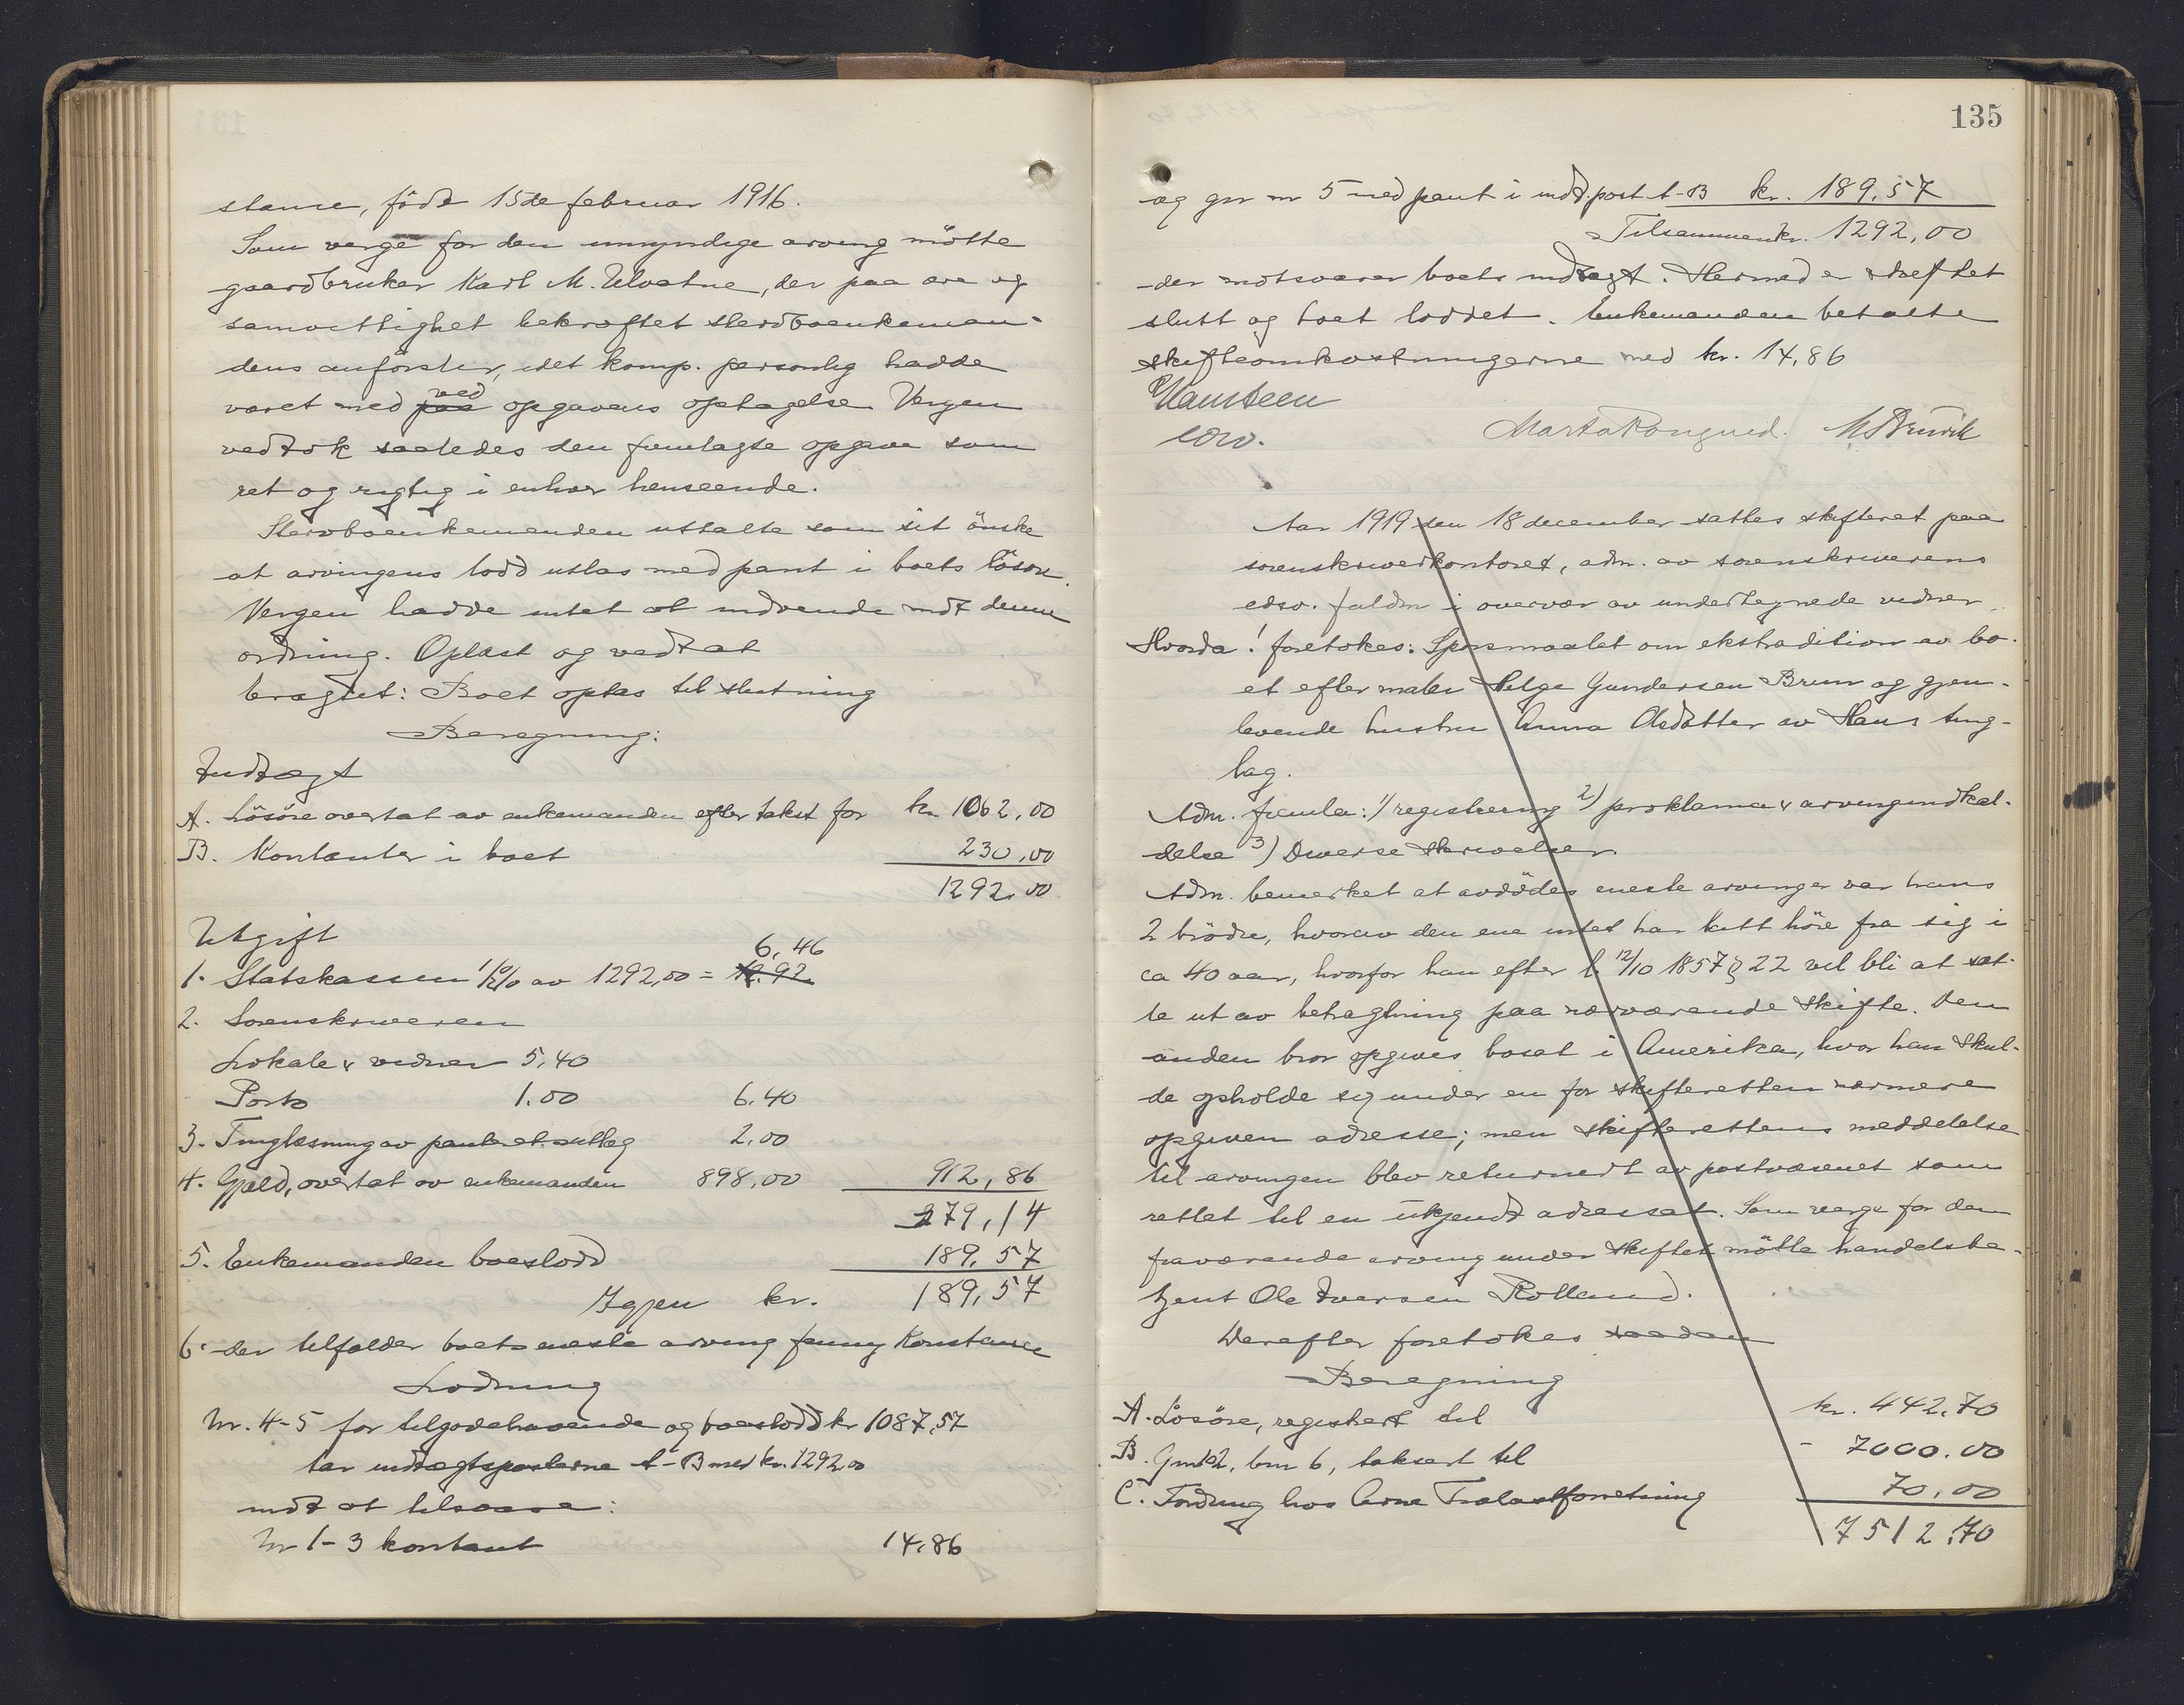 stance, född 15de februar 1916.
Som verge for den umyndige arving mötte
gaardbruker Karl M. Ulvatne, der paa ære og
samvittighet bekræftet sterboenkeman-
dens anförsler, idet komp. personlig hadde
været med paa ved opgavens optagelse. Vergen
vedtok saaledes den fremlagte opgave som
ret og rigtig i enhver henseende.
Sterboenkemanden uttalte som sit önske
at arvingens lodd utlas med pant i boets lösöre.
Vergen hadde intet at indvende mot denne
ordning. Oplæst og vedtat
bragtet: Boet optas til slutning
Beregning:
Indtægt
A. Lösöre overtat av enkemanden efter takst for kr. 1062,00
B. Kontanter i boet 230,00
1292,00
Utgift
6,46
1. Statskassen ½% av 1292,00 = 12.92
2. Sorenskriveren
Lokale & vidner 5,40
Porto 1.00 6.40
3. Tinglæsning av panteret. utlæg 2,00
4. Gjæld, overtat av enkemanden 898,00 912,86
379,14
5. Enkemanden boeslodd 189,57
Igjen kr. 189,57
6. der tilfalder boets eneste arving Jenny Konstance
Lodning
Nr. 4-5 for tilgodehavende og boeslodd kr 1087,57
tar indtægtsposterne A-B med kr. 1292 00
mot at tilsvare:
Nr 1-3 kontant 14,86
135
og gr nr 5 med pant i indt.post A-B kr. 189,57
Tilsammen kr. 1292,00
der motsvarer boets indtægt. Hermed er skiftet
slutt og boet loddet. Enkemanden betalte
skifteomkostningerne med kr. 14,86
Hansteen
cow.
Marta Rongved. M Bruvik
Aar 1919 den 18 december sattes skifteret paa
sorenskriverkontoret, adm. av sorenskriverens
edsv. fuldm i overvær av undertegnede vidner.
Hvorda! foretokes: Spörsmaalet om ekstradition av bo-
et efter maler Helge Gundersen Brun og gjen-
levende hustru Anna Olsdatter av Haus ting-
lag.
Adm. fremla: 1) registrering 2) proklama & arvingindkal-
delse 3) Diverse skrivelser.
Adm. bemerket at avdödes eneste arvinger var hans
2 brödre, hvorav den ene intet har latt höre fra sig i
ca 40 aar, hvorfor han efter l. 12/10 1857 § 22 vil bli at sæt-
te ut av betragtning paa nærværende skifte. Den
anden bror opgives bosat i Amerika, hvor han skul-
de opholde sig under en for skifteretten nærmere
opgiven adresse; men skifterettens meddelelse
til arvingen blev returnert av postvæsenet som
rettet til en ukjendt adressat. Som verge for den
fraværende arving under skiftet mötte handelsbe-
tjent Ole Iversen Rolland.
Derefter foretokes saadan
Beregning
A. Lösöre, registrert til kr. 442,70
B. Gnr 12, bnr 6, taksert til - 7000.00
C. Fordring hos Arne Trælastforretning 70,00
7512,70